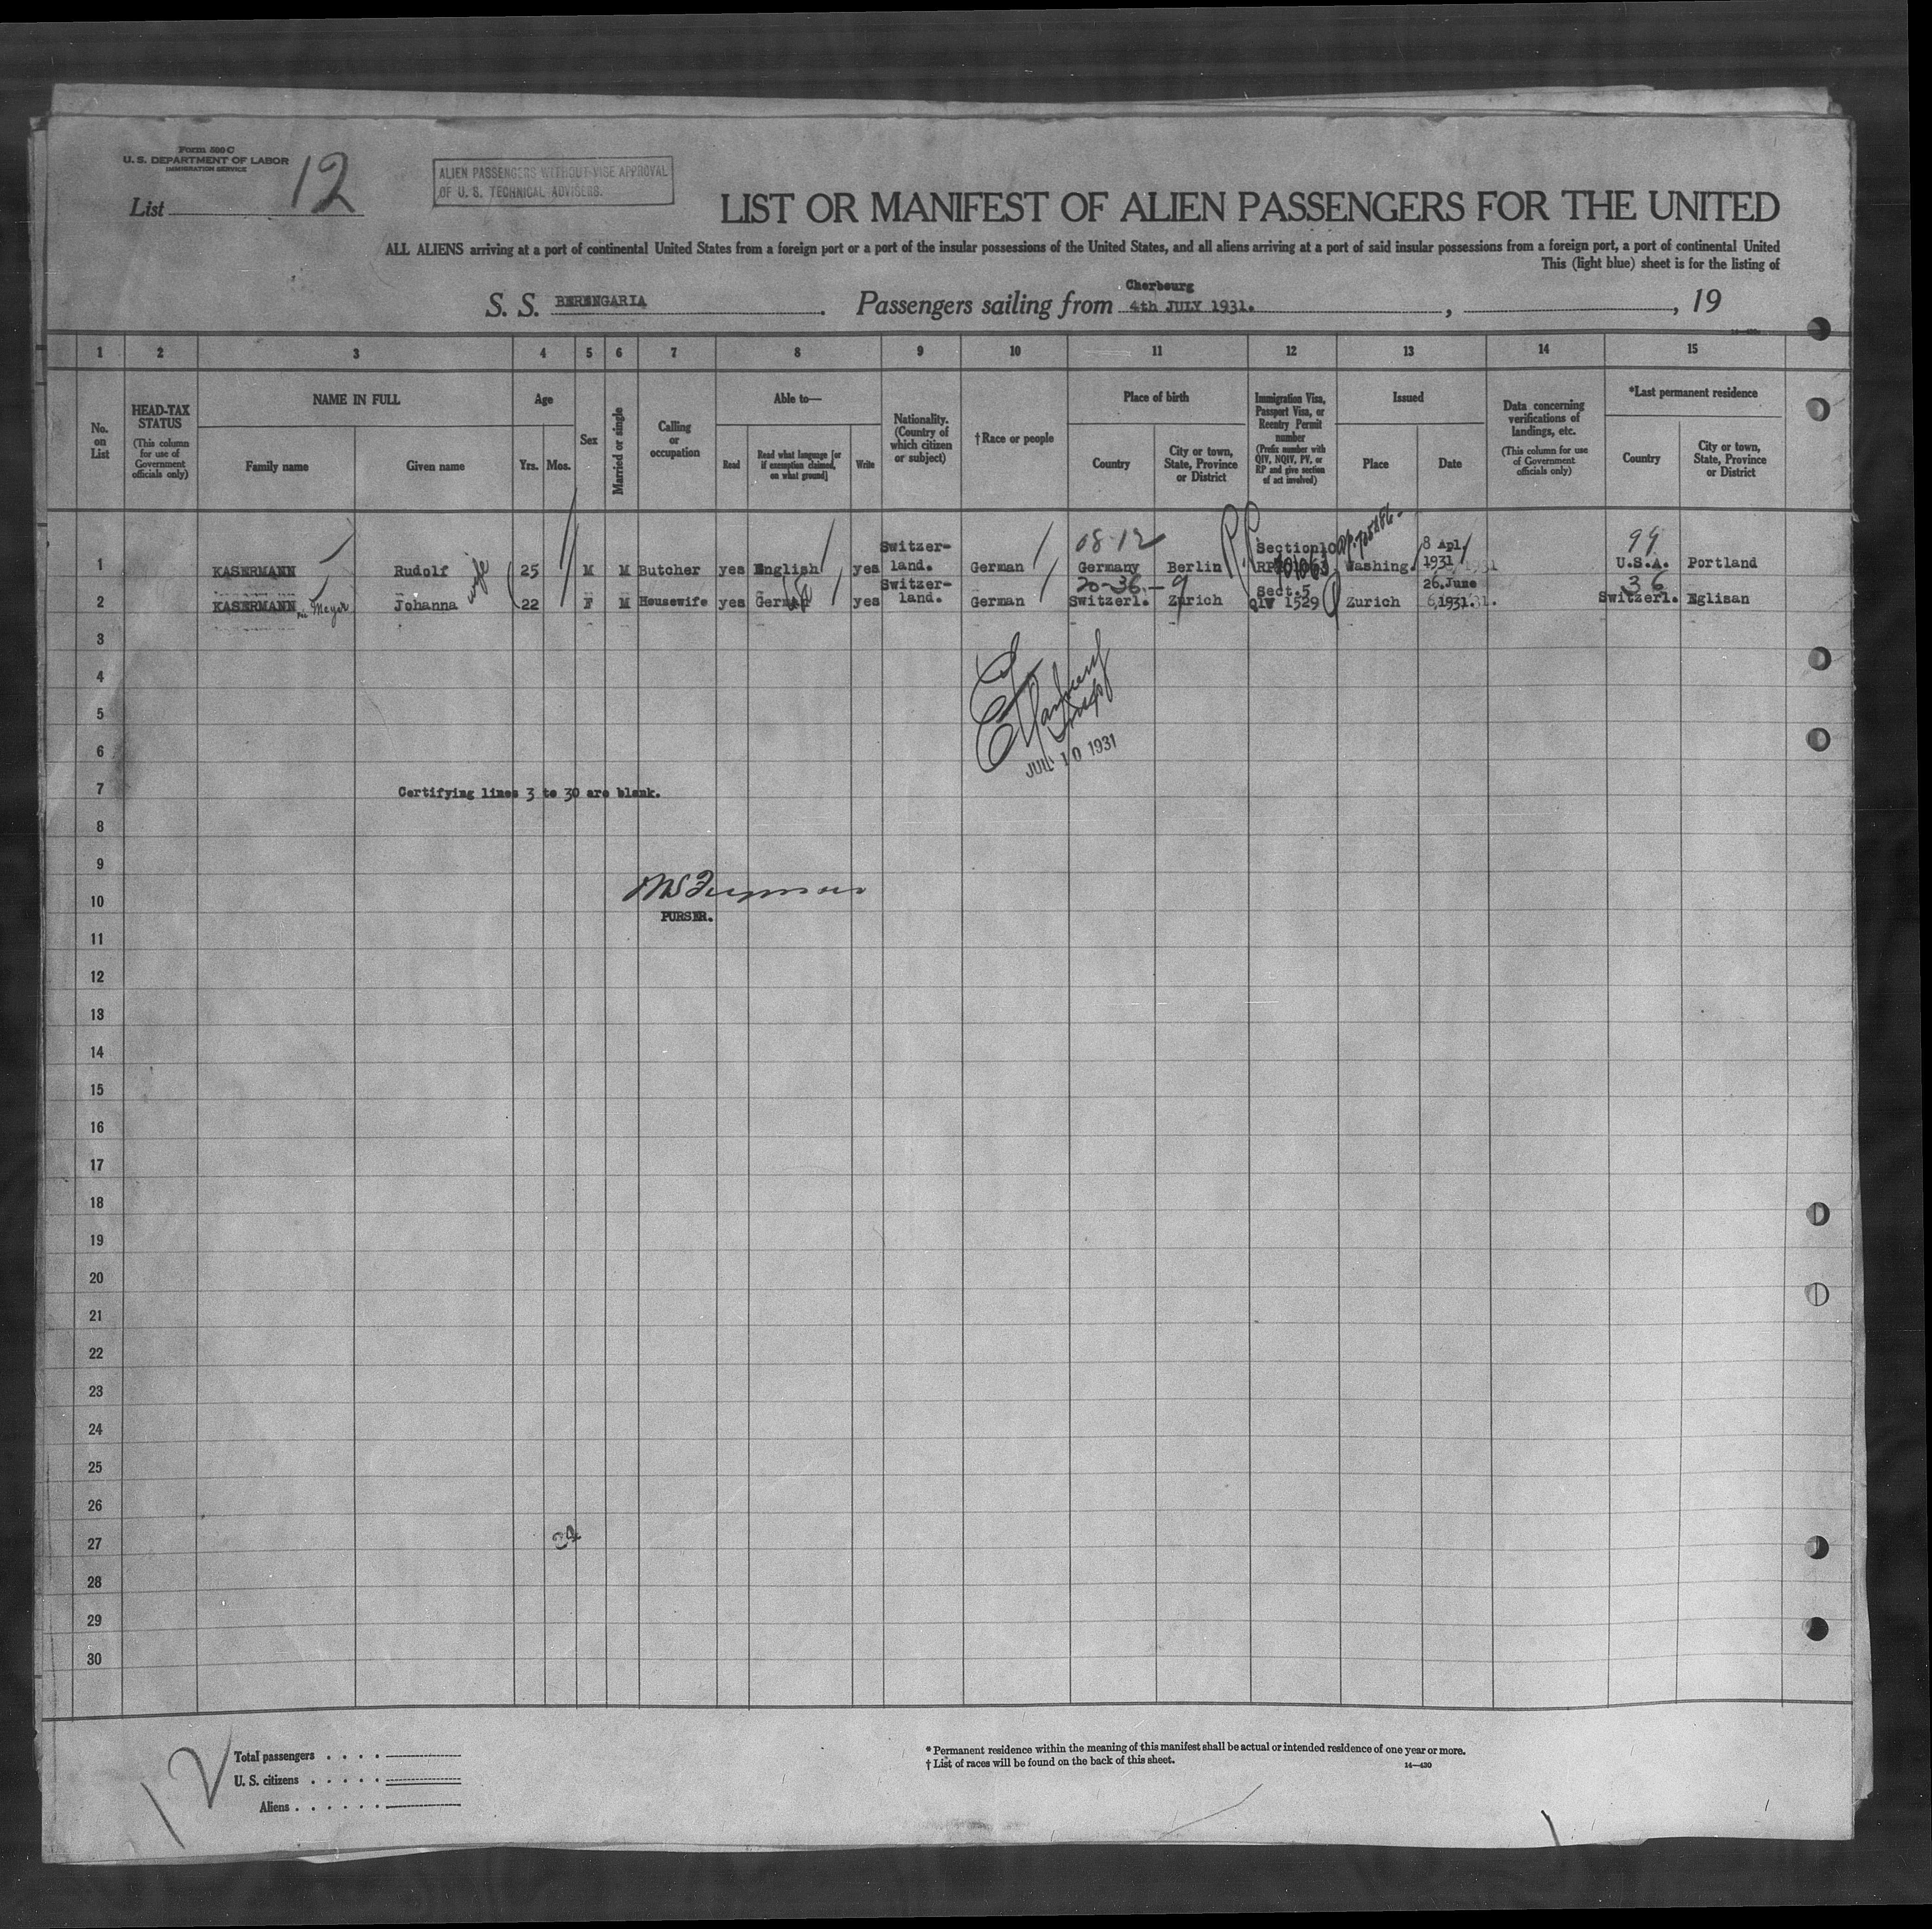 Form 500 C
U. S. DEPARTMENT OF LABOR
IMMIGRATION SERVICE
List 12
ALIEN PASSENGERS WITHOUT VISE APPROVAL
OF U. S. TECHNICAL ADVISERS.
LIST OR MANIFEST OF ALIEN PASSENGERS FOR THE UNITED
ALL ALIENS arriving at a port of continental United States from a foreign port or a port of the insular possessions of the United States, and all aliens arriving at a port of said insular possessions from a foreign port, a port of continental United
This (light blue) sheet is for the listing of
S. S. BERENGARIA. Passengers sailing from Cherbourg 4th JULY 1931. , , 19
1 2 3 4 5 6 7 8 9 10 11 12 13 14 15
No. on List
HEAD-TAX STATUS
(This column for use of Government officials only)
NAME IN FULL
Family name
Given name
Age
Yrs. Mos.
Sex
Married or single
Calling or occupation
Able to—
Read
Read what language [or if exemption claimed, on what ground]
Write
Nationality. (Country of which citizen or subject)
†Race or people
Place of birth
Country
City or town, State, Province or District
Immigration Visa, Passport Visa, or Reentry Permit number
(Prefix number with QIV, NQIV, PV, or RP and give section of act involved)
Issued
Place
Date
Data concerning verifications of landings, etc.
(This column for use of Government officials only)
*Last permanent residence
Country
City or town, State, Province or District
1 KASERMANN Rudolf 25 M M Butcher yes English yes Switzer-land. German 08-12 Germany Berlin Section10 RP Washing. 8 Apl 1931 99 U.S.A. Portland
wife
2 KASERMANN Meyer Johanna 22 F M Housewife yes German yes Switzer-land. German 20-36- Switzerl. Zurich Sect.5 QIV 1529 Zurich 26.June 1931. 36 Switzerl. Eglisan
3
4
5
6
JUL 10 1931
7 Certifying lines 3 to 30 are blank.
8
9
10
PURSER.
11
12
13
14
15
16
17
18
19
20
21
22
23
24
25
26
27
34
28
29
30
12
Total passengers . . . .
U. S. citizens . . . . .
Aliens . . . . . .
* Permanent residence within the meaning of this manifest shall be actual or intended residence of one year or more.
† List of races will be found on the back of this sheet.
14—430